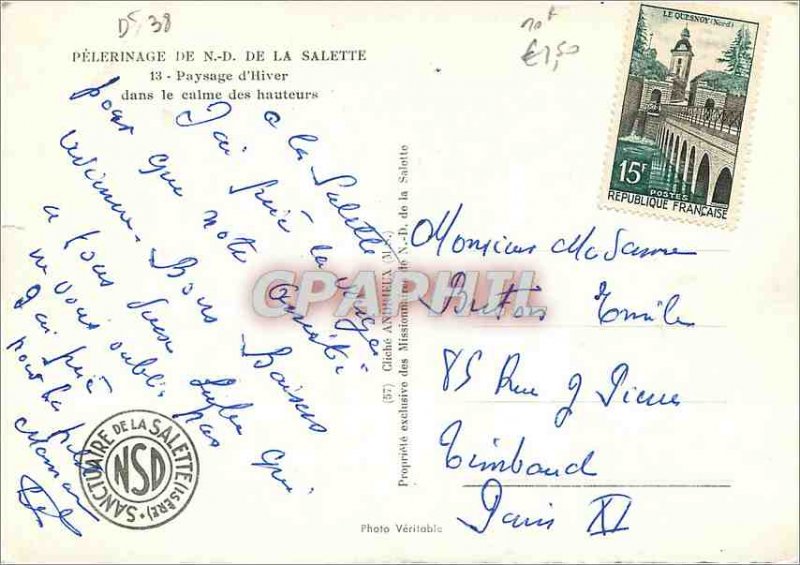 DS 38
10F
€1,50
PÈLERINAGE DE N.-D. DE LA SALETTE
13 - Paysage d'Hiver
dans le calme des hauteurs
LE QUESNOY (Nord)
15F
POSTES
RÉPUBLIQUE FRANÇAISE
a la Salette
J'ai prié la Vierge
pour que note amitié
revienne. Bons Baisers
a tous
ne vous oublie pas
J'ai prié
pour la
Maman
SANCTUAIRE DE LA SALETTE (ISÈRE)
NSD
(57) Cliché ANDRIEUX
Propriété exclusive des Missionnaires de N.-D. de la Salette
CPAPHIL
Monsieur Madame
Bretois Emile
85 Rue J Pierre
Timbaud
Paris XI
Photo Véritable